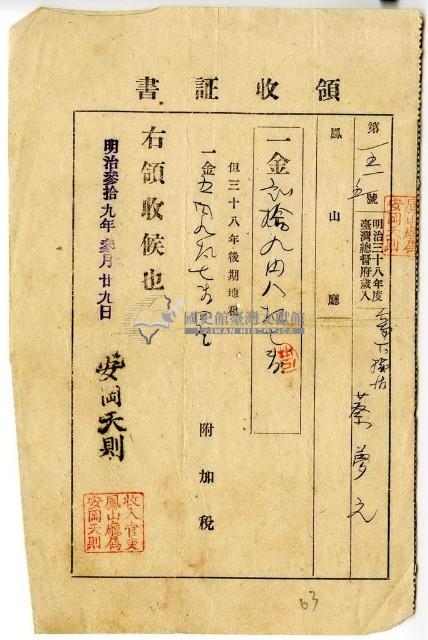 領收証書
第一五五號
明治三十八年度
臺灣總督府歲入
蔡夢元
鳳山廳
一金貳拾九円八拾七錢
但三十八年後期地租
一金五円九拾七錢 附加稅
右領收候也
明治參拾九年參月廿九日
安岡天則
收入官吏
鳳山廳屬
安岡天則
鳳山廳屬
安岡天則
國史館臺灣文獻館
TAIWAN HISTORICA
63